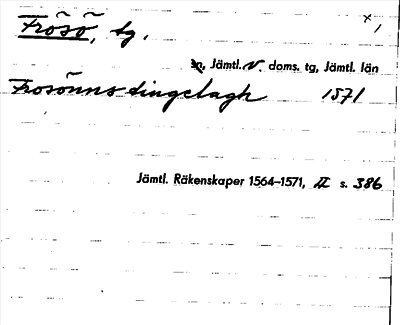 Frösö, tg.
sn, Jämtl. N. doms. tg, Jämtl. län
Frosönns tingelagh 1571
Jämtl. Räkenskaper 1564–1571, II s. 386